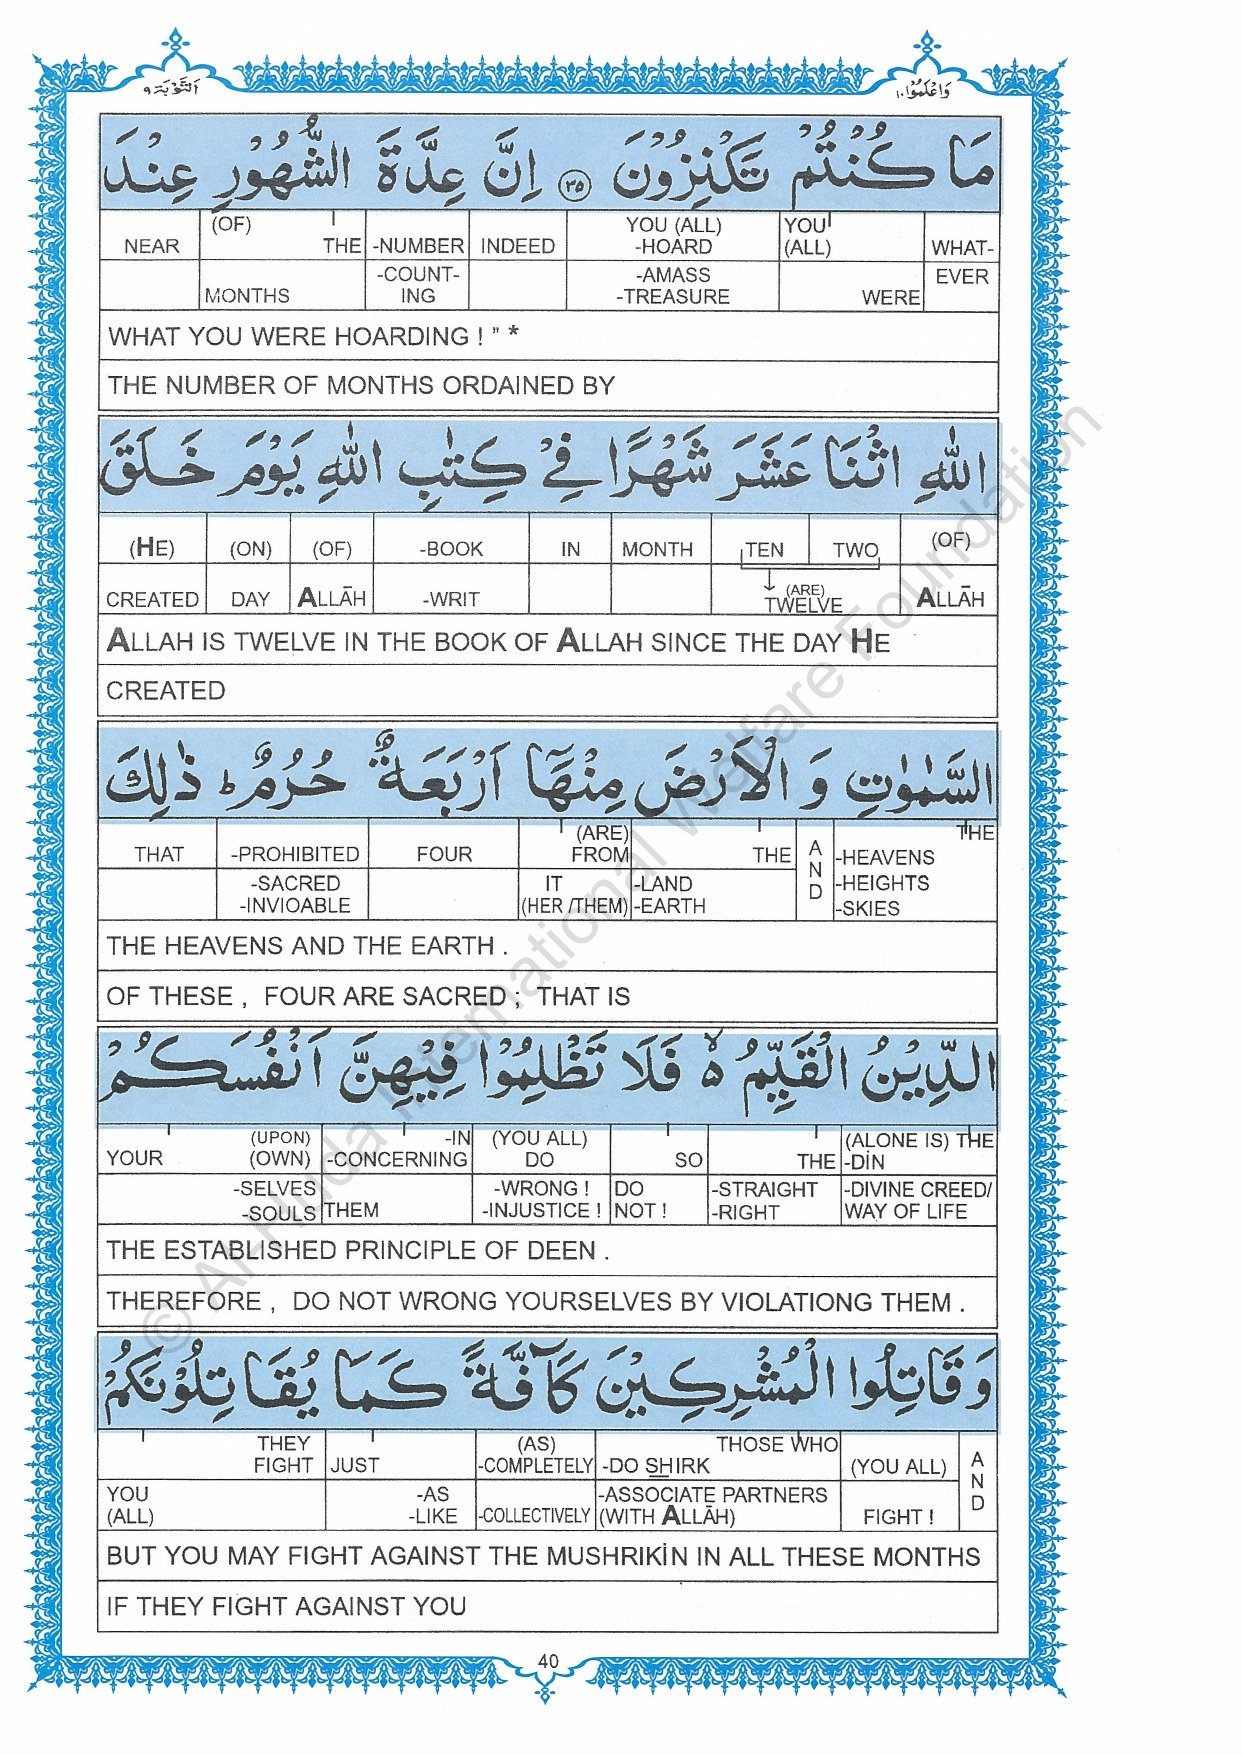 وَاعْلَمُوْا ١٠
اَلتَّوْبَة ٩
مَا كُنْتُمْ تَكْنِزُوْنَ ﴿٣٥﴾ اِنَّ عِدَّةَ الشُّهُوْرِ عِنْدَ
NEAR (OF) THE -NUMBER INDEED YOU (ALL) -HOARD YOU (ALL) WHAT-
MONTHS -COUNT-ING -AMASS -TREASURE WERE EVER
WHAT YOU WERE HOARDING ! ” *
THE NUMBER OF MONTHS ORDAINED BY
اللّٰهِ اثْنَا عَشَرَ شَهْرًا فِيْ كِتٰبِ اللّٰهِ يَوْمَ خَلَقَ
(HE) (ON) (OF) -BOOK IN MONTH TEN TWO (OF)
CREATED DAY ALLĀH -WRIT (ARE) TWELVE ALLĀH
ALLAH IS TWELVE IN THE BOOK OF ALLAH SINCE THE DAY HE
CREATED
السَّمٰوٰتِ وَ الْاَرْضَ مِنْهَآ اَرْبَعَةٌ حُرُمٌ ؕ ذٰلِكَ
THAT -PROHIBITED FOUR (ARE) FROM THE AND THE -HEAVENS
-SACRED -INVIOABLE IT (HER /THEM) -LAND -EARTH -HEIGHTS -SKIES
THE HEAVENS AND THE EARTH .
OF THESE , FOUR ARE SACRED ; THAT IS
الدِّيْنُ الْقَيِّمُ ۙ فَلَا تَظْلِمُوْا فِيْهِنَّ اَنْفُسَكُمْ
YOUR (UPON) (OWN) -IN -CONCERNING (YOU ALL) DO SO THE (ALONE IS) THE -DİN
-SELVES -SOULS THEM -WRONG ! -INJUSTICE ! DO NOT ! -STRAIGHT -RIGHT -DIVINE CREED/ WAY OF LIFE
THE ESTABLISHED PRINCIPLE OF DEEN .
THEREFORE , DO NOT WRONG YOURSELVES BY VIOLATIONG THEM .
وَ قَاتِلُوا الْمُشْرِكِيْنَ كَآفَّةً كَمَا يُقَاتِلُوْنَكُمْ
THEY FIGHT JUST (AS) -COMPLETELY THOSE WHO -DO SHIRK (YOU ALL) AND
YOU (ALL) -AS -LIKE -COLLECTIVELY -ASSOCIATE PARTNERS (WITH ALLĀH) FIGHT !
BUT YOU MAY FIGHT AGAINST THE MUSHRIKİN IN ALL THESE MONTHS
IF THEY FIGHT AGAINST YOU
40
© Al-Huda International Welfare Foundation